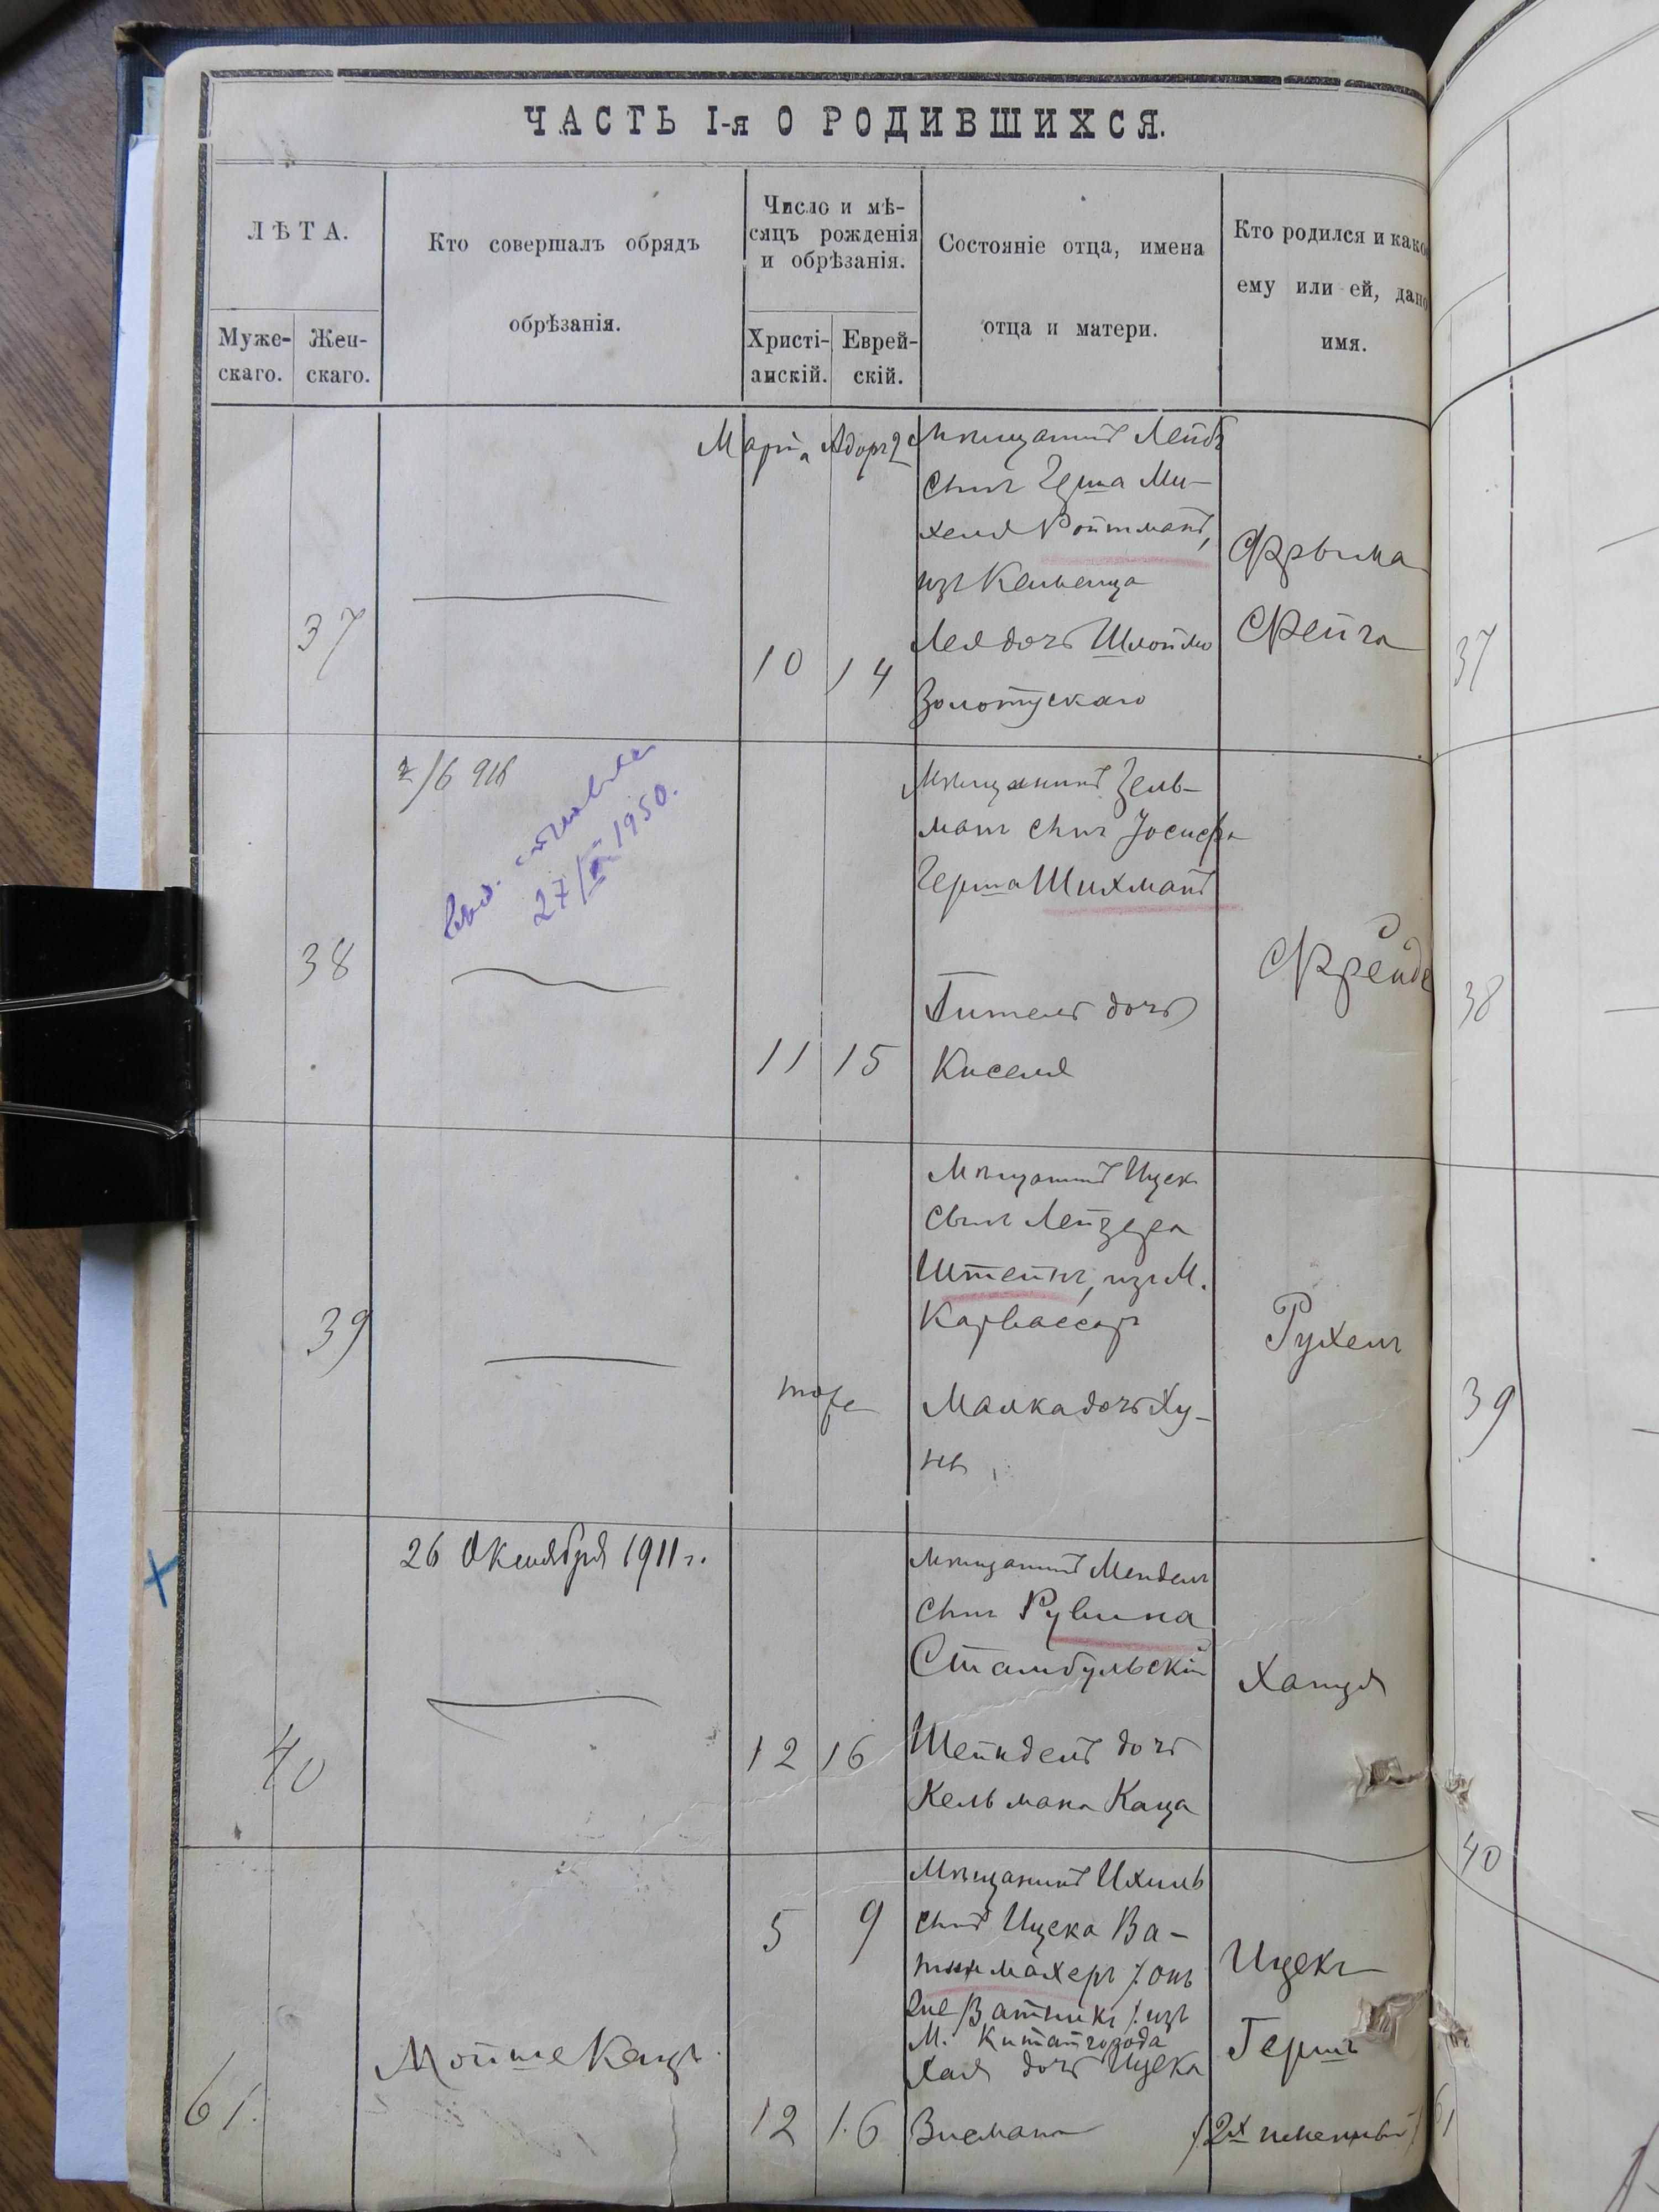 ЧАСТЬ I-я О РОДИВШИХСЯ.
ЛѢТА.
Муже-
скаго.
Жен-
скаго.
Кто совершалъ обрядъ
обрѣзанія.
Число и мѣ-
сяцъ рожденія
и обрѣзанія.
Христі-
анскій.
Еврей-
скій.
Состояніе отца, имена
отца и матери.
Кто родился и како
ему или ей, дано
имя.
37
Марта Адоръ 2
10 14
Мѣщанинъ Лейбъ
сынъ Герша Ми-
хеля Ройтманъ,
изъ Каменца
Лея дочь Шлоймо
Золотускаго
Фрыма
Фейга
37
2/6 916
27/ 1950.
38
11 15
Мѣщанинъ Зель-
манъ сынъ Іосифа
Герша Шихманъ
Гитель дочь
Киселя
Фрейда
38
39
тоже
Мѣщанинъ Ицекъ
сынъ Лейзера
Штейнъ, изъ М.
Карвасеръ
Малка дочь Ху-
ны
Рухель
39
26 Октября 1911 г.
40
12 16
Мѣщанинъ Мендель
сынъ Рувина
Стамбульскій
Шейндель дочь
Кельмана Каца
Хантя
40
61.
Мойше Кацъ.
5 9
12 16
Мѣщанинъ Ихиль
сынъ Ицека Ва-
тнмахеръ /: онъ
же Ватникъ :/ изъ
М. Китайгорода
Хая дочь Ицека
Висмана
Ицекъ
Гершъ
/2х именный/
61